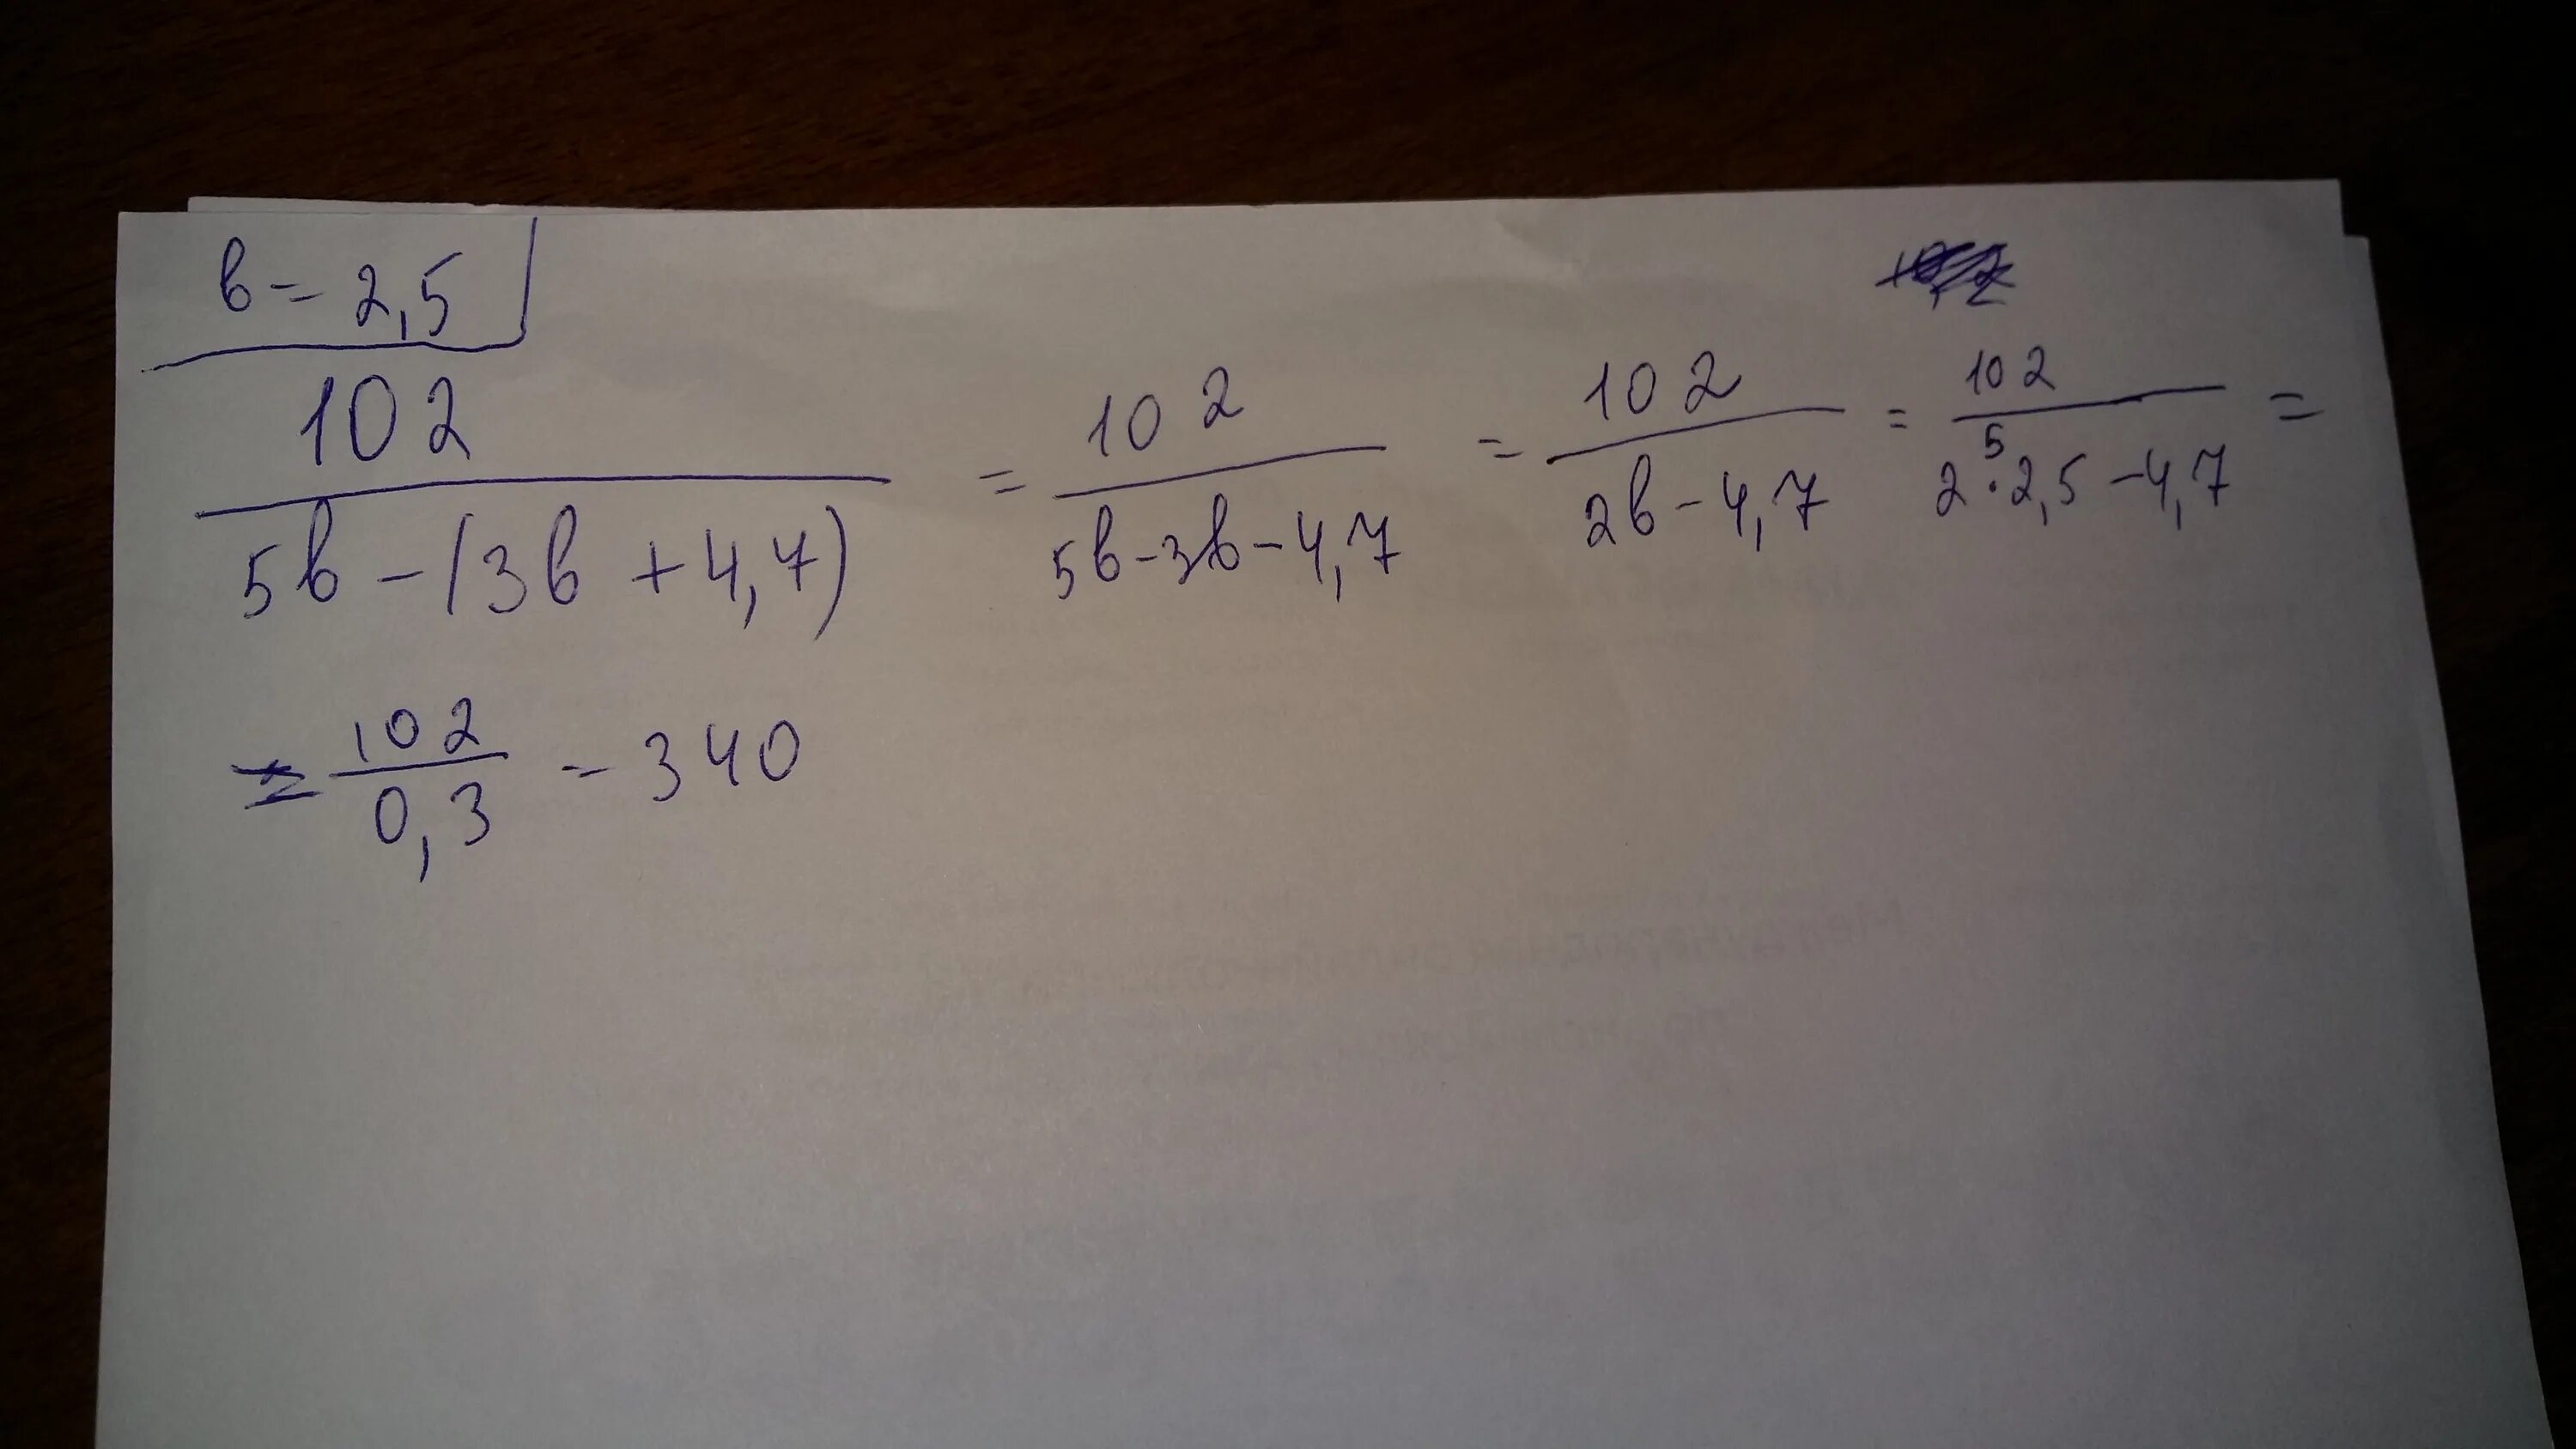 b = 2,5
102 / 5b - (3b + 4,7) = 102 / 5b - 3b - 4,7 = 102 / 2b - 4,7 = 102 / 2 · 2,5 - 4,7 =
5
= 102 / 0,3 = 340